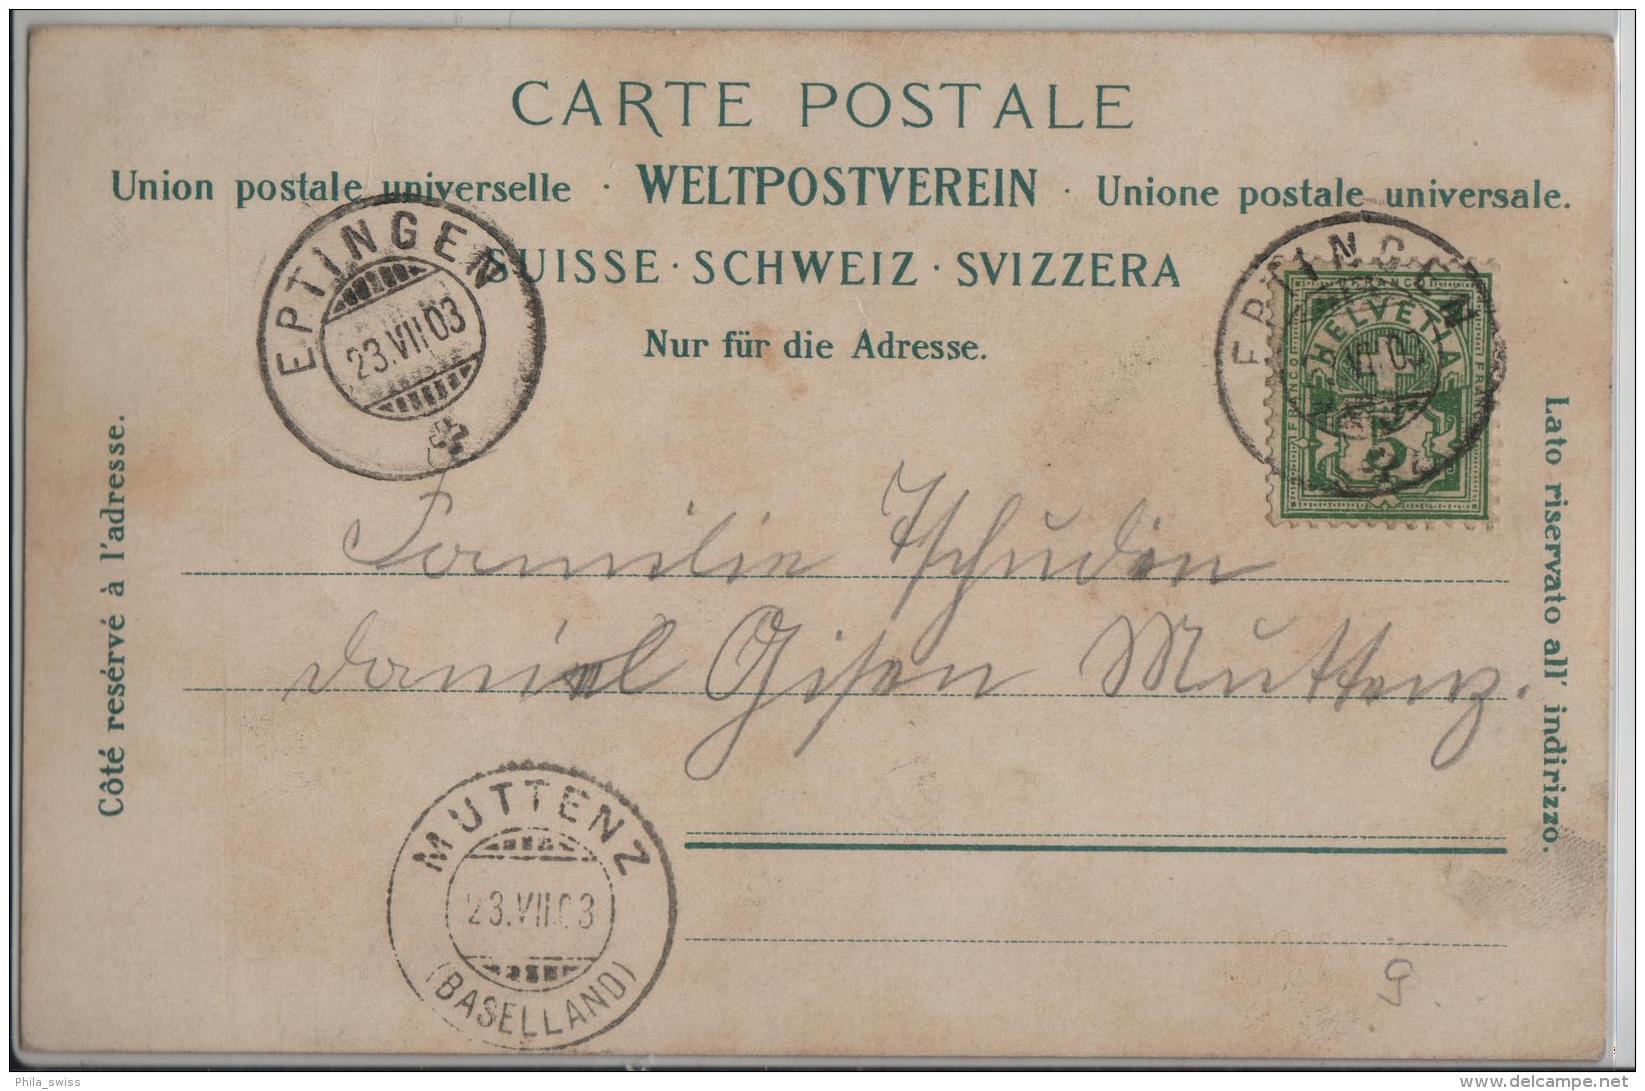 CARTE POSTALE
Union postale universelle · WELTPOSTVEREIN · Unione postale universale.
SUISSE · SCHWEIZ · SVIZZERA
Nur für die Adresse.
EPTINGEN
23.VII.03
EPTINGEN
VII.03
FRANCO
HELVETIA
FRANCO
FRANCO
5
Côté resérvé à l'adresse.
Lato riservato all' indirizzo.
Familie Tschudin
Daniel Gisen Muttenz.
MUTTENZ
23.VII.03
(BASELLAND)
G.
Phila_swiss
delcampe.net